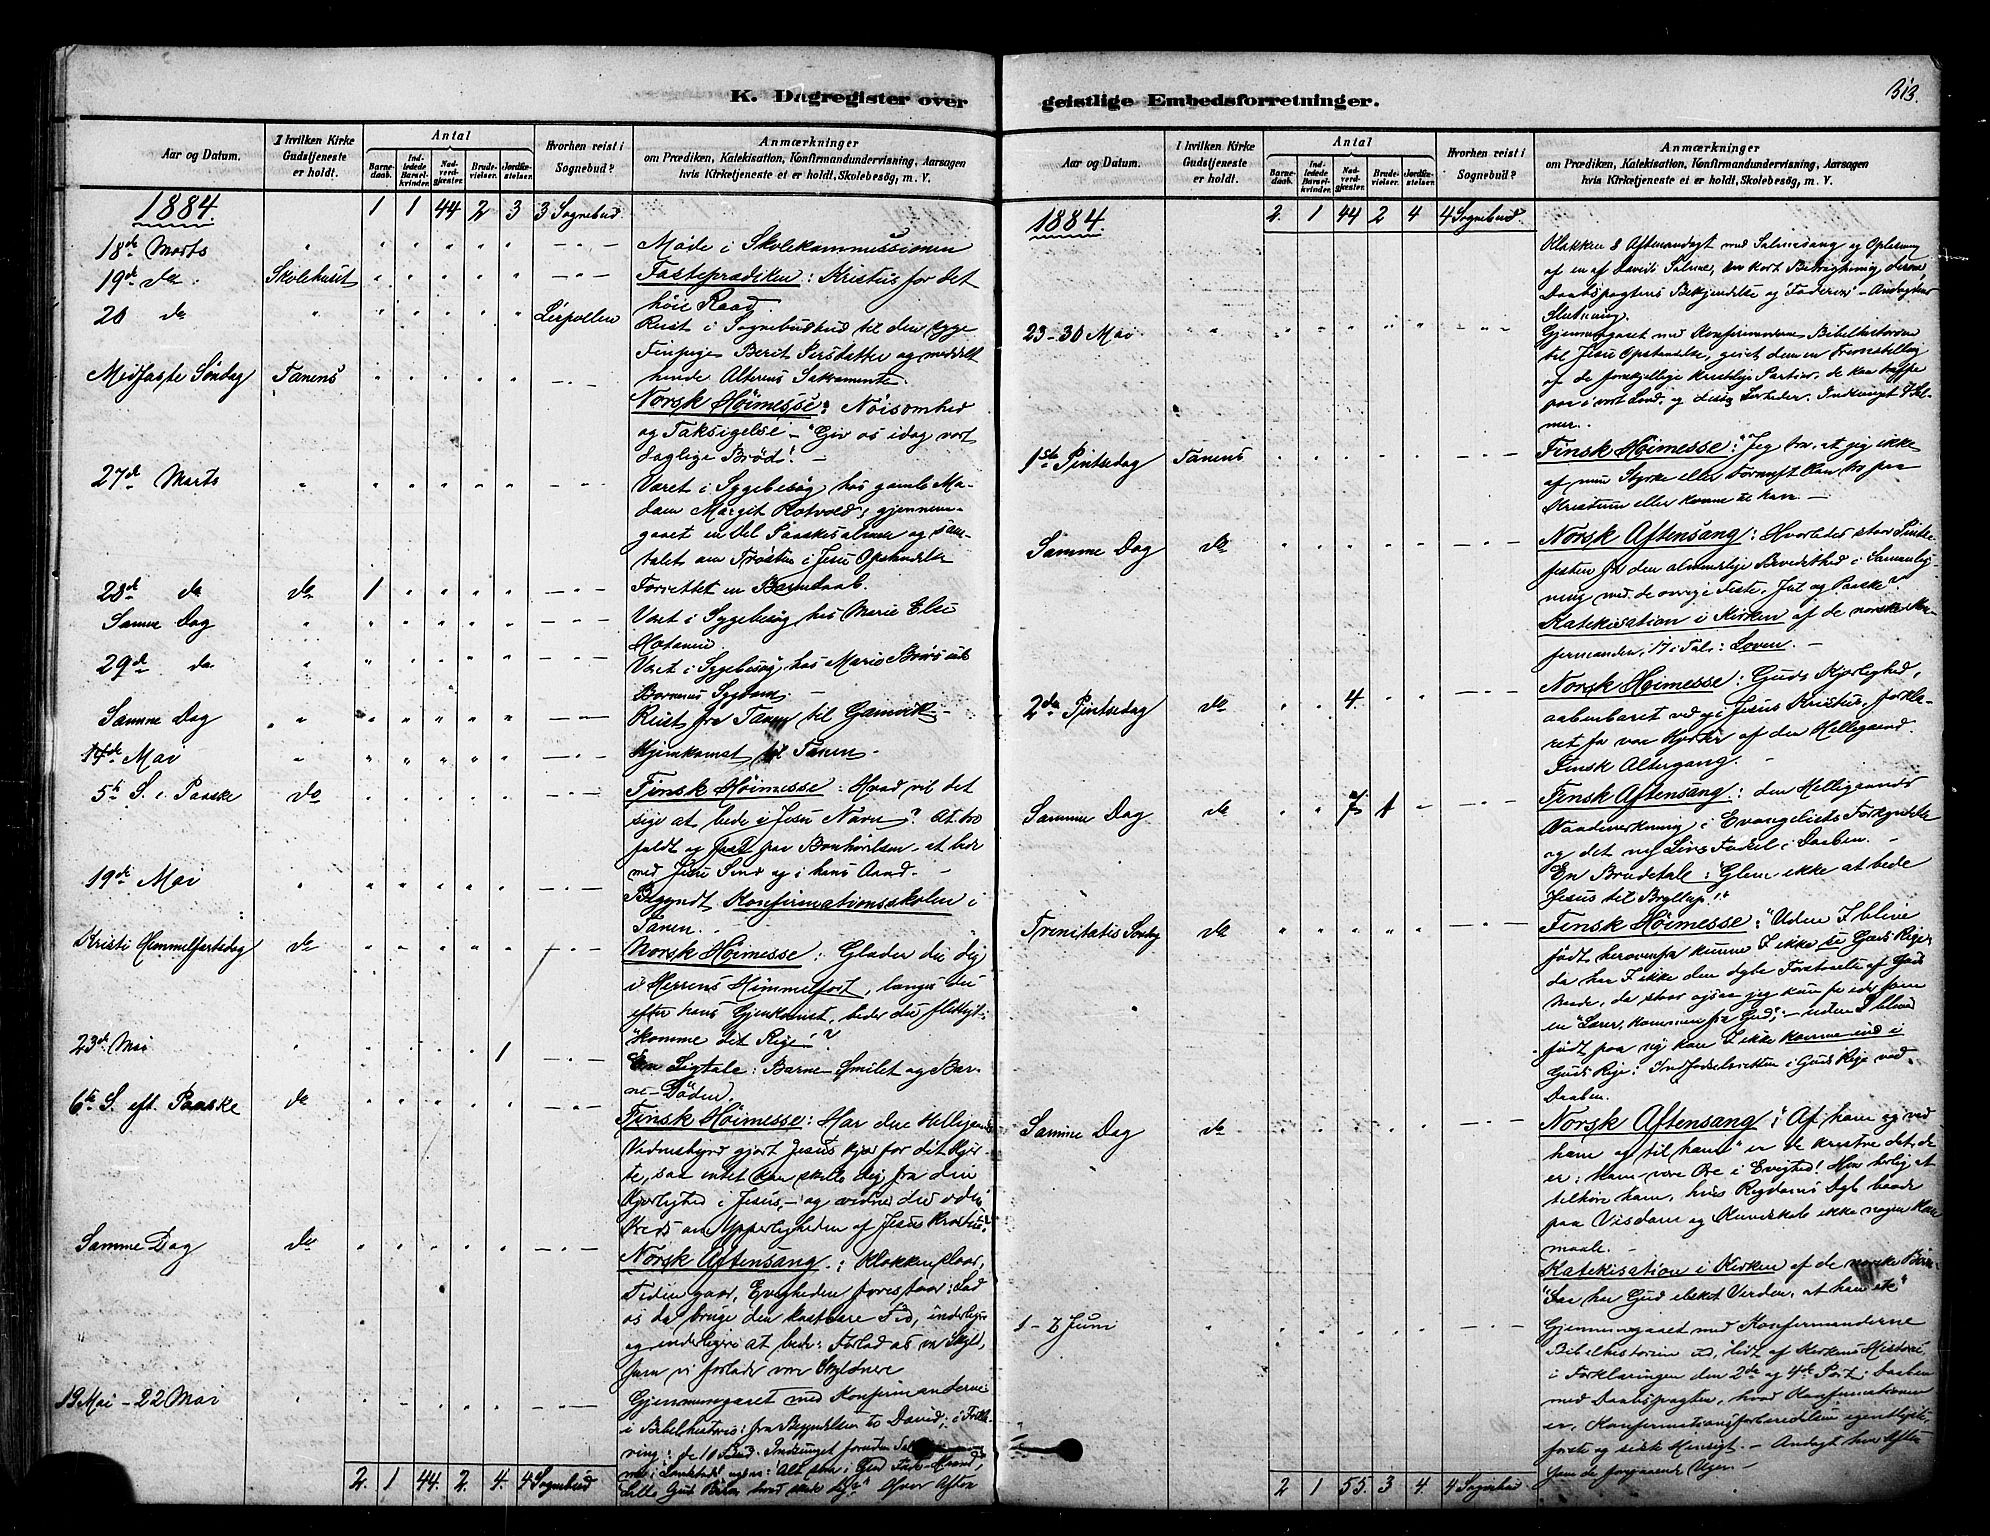 K. Dagregister over
geistlige Embedsforretninger.
313.
Aar og Datum.
I hvilken Kirke Gudstjeneste er holdt.
Antal
Barnedaab.
Indledede Barselkvinder.
Nadverdgjæster.
Brudevielser.
Jordfæstelser.
Hvorhen reist i Sognebud?
Anmærkninger
om Prædiken, Katekisation, Konfirmandundervisning, Aarsagen
hvis Kirketjeneste ei er holdt, Skolebesøg, m. V.
1884. 1 1 44 2 3 3 Sognebud
18de Marts Møde i Skolekommissionen
19de do Skolehuset Fasteprædiken: Kristus for det
høie Raad.
20 do Leirpollen Reist i Sognebud til den syge
Finpige Berit Persdatter og meddelt
hende Alterens Sakramente.
Midfaste Søndag Tanens Norsk Høimesse: Nøisomhed
og Taksigelse - "Giv os idag vort
daglige Brød!"
27de Marts Været i Sygebesøg hos gamle Ma-
dam Margit Rotvold; gjennem-
gaaet en Del Paaskesalmer og sam-
talet om Trøsten i Jesu Opstandelse
28de do do 1 Forrettet en Barnedaab.
Samme Dag Været i Sygebesøg hos Marie Else
29de do Været i Sygebesøg hos Marie
Børnenes Sygdom.
Samme Dag Reist fra Tanen til Gamvik
14de Mai Hjemkomst til Tanen.
5te S. e. Paaske do Finsk Høimesse: Hvad vil det
sige at bede i Jesu Navn? At tro
fuldt og fast paa Bønhørelsen, at bede
med Jesu Sind og i hans Aand.
19de Mai Begyndt Konfirmationsskolen i
Tanen.
Kristi Himmelfartsdag do Norsk Høimesse: Glæder du dig
i Herrens Himmelfart, længes du
efter hans Gjenkomst, beder du flittigt:
"komme dit Rige!"?
23de Mai 1 En Ligtale: Barne-Smilet og Bar-
ne-Døden.
6te S. eft. Paaske do Finsk Høimesse: Har den Helligaands
Vidnesbyrd gjort Jesus kjær for dit Hjer-
te, saa intet kan skille dig fra din
Kjærlighed i Jesus, - og vidner du uden
om Ypperligheden af Jesus Kristus?
Samme Dag do Norsk Aftensang: Klokken slaar,
Tiden gaar, Evigheden forestaar: Lad
os da bruge den kostbare Tid, inderligere
og inderligere at bede: Forlad os vor Skyld,
som vi forlade vore Skyldnere
19 Mai - 22 Mai Gjennemgaaet med Konfirmanderne
i Bibelhistorie: fra Begyndelsen to David; i Forkla-
ring: de 10 Bud. Indsunget foruden
2. 1 44. 2. 4. 4 Sognebud
Aar og Datum.
I hvilken Kirke Gudstjeneste er holdt.
Antal
Barnedaab.
Indledede Barselkvinder.
Nadverdgjæster.
Brudevielser.
Jordfæstelser.
Hvorhen reist i Sognebud?
Anmærkninger
om Prædiken, Katekisation, Konfirmandundervisning, Aarsagen
hvis Kirketjeneste ei er holdt, Skolebesøg, m. V.
1884. 2. 1 44 2 4 4 Sognebud.
Klokken 8 Aftenandagt med Salmesang og Oplæsning
af en af Davids Salmer, en kort Betragtning derover,
Daabspagtens Bekjendelse og "Fadervor" - Andagtens
Slutning.
23-30 Mai Gjennemgaaet med Konfirmanderne Bibelhistorien
til Jesu Opstandelse, givet dem en Fremstilling
af de forskjellige kristelige Partier, de kan træffe
paa i vort Land, og disses Lærheder. Indsunget 7 Sal-
mer.
1ste Pintsedag Tanens Finsk Høimesse: "Jeg tror, at jeg ikke
af min Styrke eller Fornuft kan tro paa
Kristum eller komme til ham. -
Samme Dag do Norsk Aftensang: Hvorledes staar Pintse-
festen for den almindelige Bevidsthed i Sammenlig-
ning med de øvrige Feste, Jul og Paaske?
Katekisation i Kirken af de norske Kon-
firmander, 17 i Tal: Loven. -
2den Pintsedag do 4 Norsk Høimesse: Guds Kjærlighed,
aabenbaret verden i Jesus Kristus, forkla-
ret for vore Hjerter af den Helligaand.
Finsk Altergang.
Samme Dag do 7 1 Finsk Aftensang: den Helligaands
Naadevirkning i Evangeliets Forkyndelse
og det ny Livs Fødsel i Daaben. -
En Brudetale: Glem ikke at bede
Jesus til Bryllup!"
Trinitatis Søndag do Finsk Høimesse: "Uden I blive
født herovenfra kunne I ikke se Guds Rige,
da har I ikke den dybe Forstaaelse af Guds
Naade, da staar ogsaa jeg kun for eder som
en "Lærer, kommen fra Gud;" - uden I blive
født paa ny kan I ikke komme ind i
Guds Rige: Indfødselsretten i Guds Rige ved
Daaben.
Samme Dag do Norsk Aftensang: "Af ham og ved
ham og til ham" er de kristne det, de
er; ham være Ære i Evighed! Hvor herlig at
tilhøre ham, hvis Rigdoms Dyb baade
paa Visdom og Kundskab ikke nogen kan
maale. -
Katekisation i Kirken af de norske Børn:
"Saa har Gud elsket Verden, at han etc"
1-7 Juni Gjennemgaaet med Konfirmanderne
Bibelhistorien ud, lidt af Kirkens Historie,
i Forklaringen den 2de og 4de Part: Daaben
med Daabspagten, hvad Konfirmationen
er, Konfirmationsforberedelsens egentligste,
første og sidste Hensigt. - Andagt hver Aften
som de foregaaende Uger. -
2 1 55. 3 4. 4 Sognebud